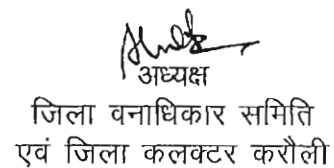 अध्यक्ष
जिला वनाधिकार समिति
एवं जिला कलक्टर करौली